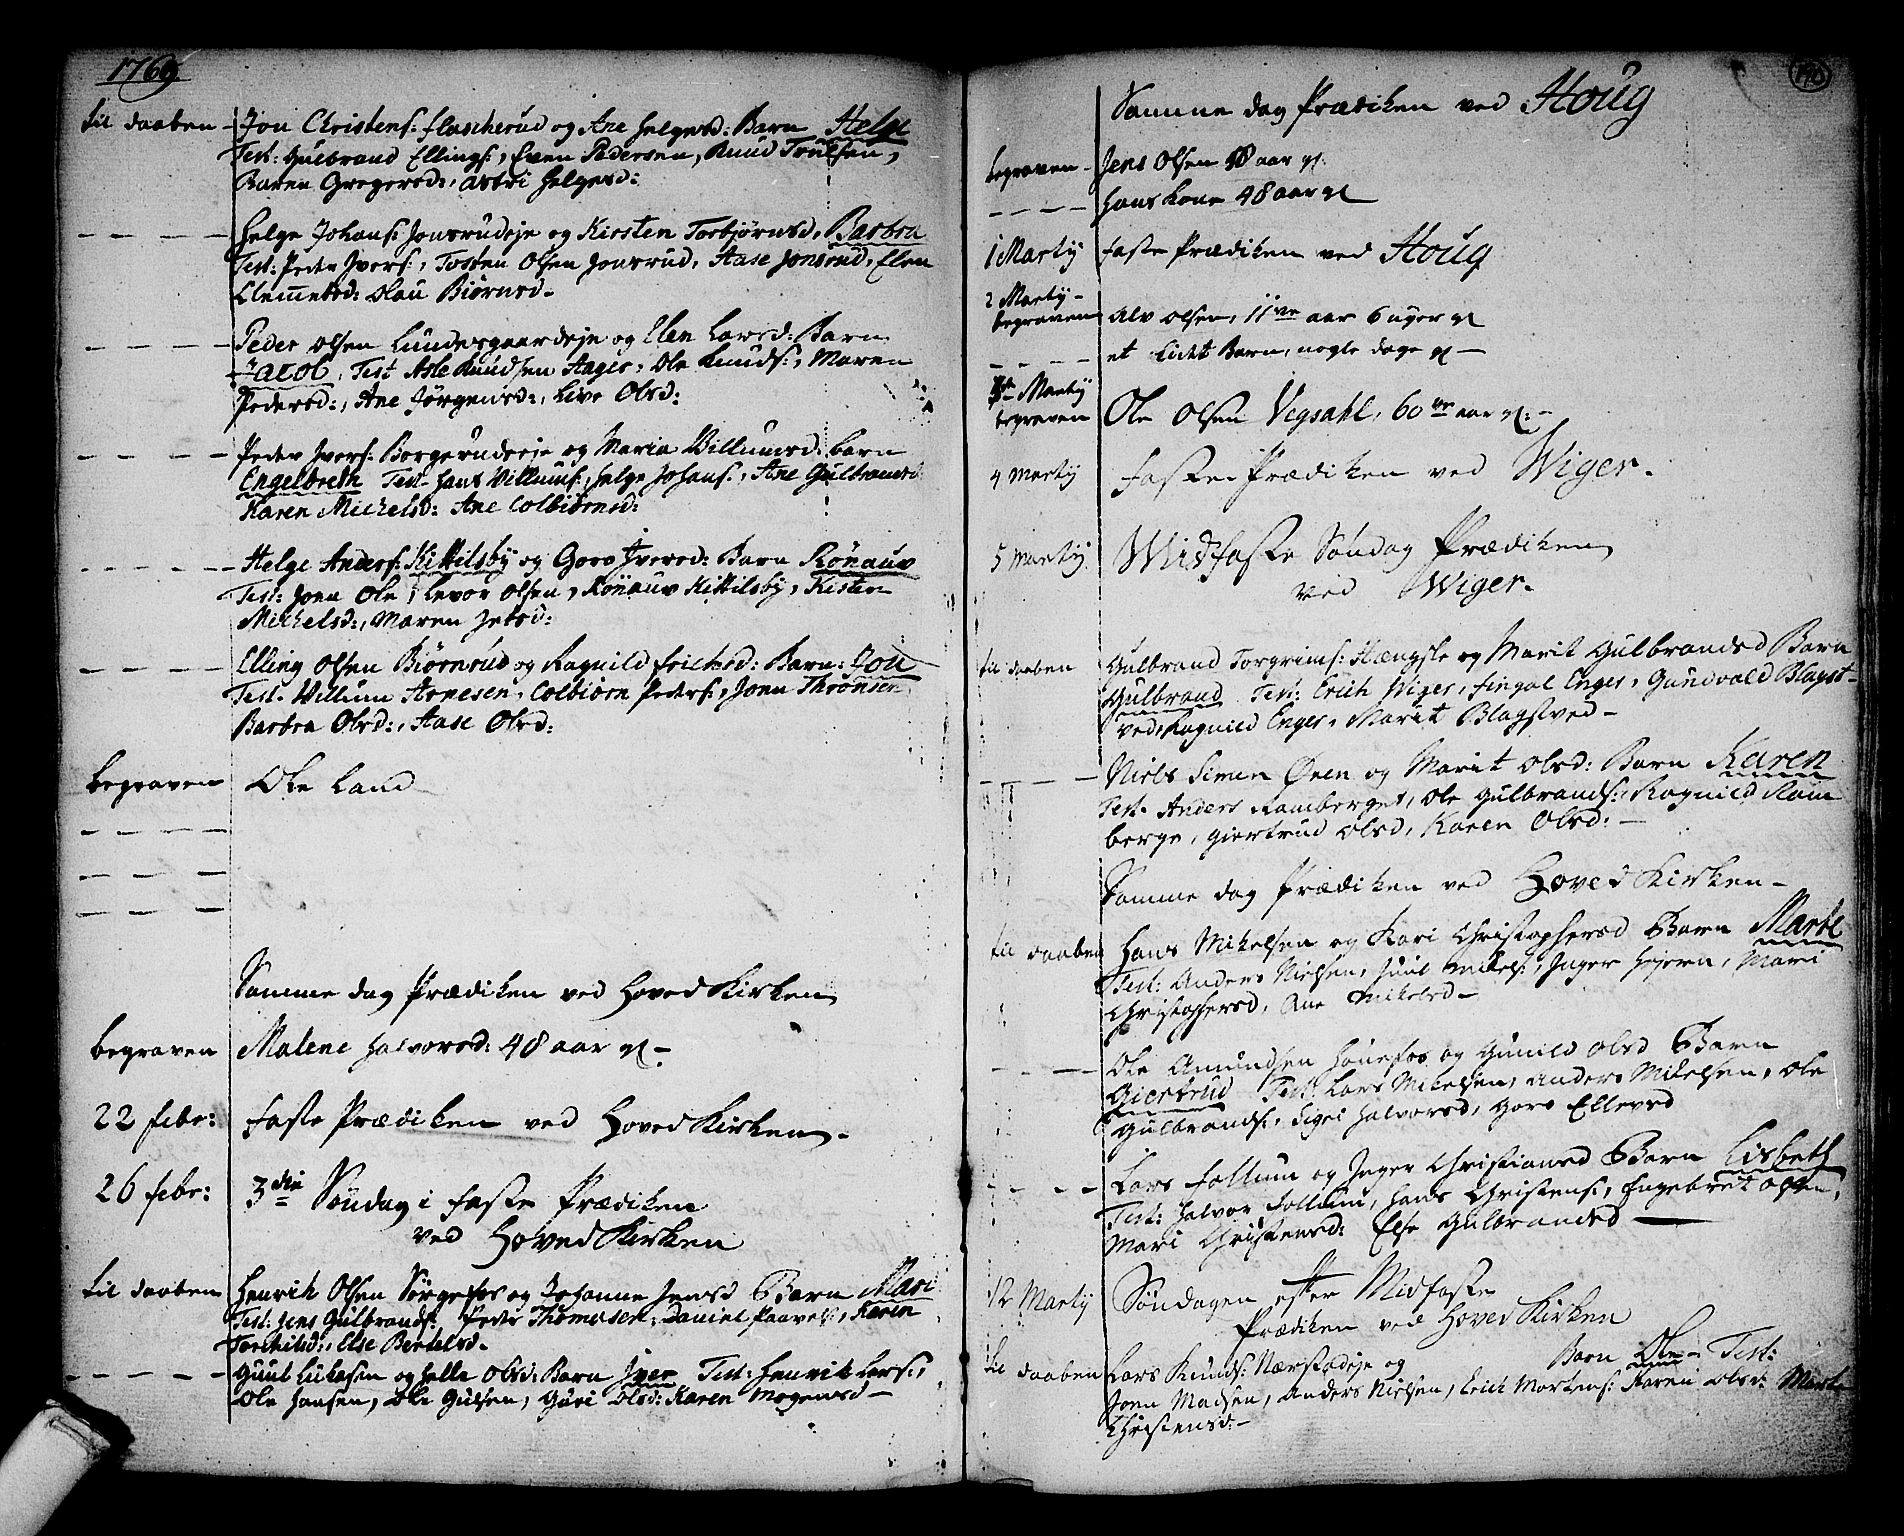 1769.
til daaben - Jon Christens: flascherud og Ane Helgersd: Barn Helge
Test: Gulbrand Ellings:, Even Pedersen, Knud Truelsen,
Karen Gregersd:, Astri Helgesd:
Helge Johans: Jonsrudeje og Kirsten Torbjørnsd. Barbra
Test: Peder Ivers:, Tosten Olsen Jonsrud, Aase Jonsrud, Elen
Clemmetsd: Olau Biørnsd-
Peder Olsen Lundesgaardeje og Elen Larsd: Barn
Jacob, Test Asle Knudsen Hager, Ole Knuds:, Maren
Pedersd:, Ane Jørgensd:, Live Olsd:
Peder Ivers: Borgerudeje og Maria Villumsd: barn
Engelbreth Test- Hans Villums:, Helge Johans:, Ane Gulbransd
Karen Michelsd: Ane Colbiørnsd:
Helge Anders: Kittilsby og Goro Iversd: Barn Rönauv
Test: Joen Ole, Levor Olsen, Rönauv Kittilsby, Kisten
Michelsd:, Maren
Elling Olsen Biørnrud og Ragnild Erichsd: Barn: Jon
Test. Villum Arnesen, Colbiørn Peders:, Joen Thronsen
Barbra Olsd:, Aase Olsd:
begraven Ole Land
Samme dag Prædiken ved Hoved Kirken
begraven Malene Halvorsd: 48 aar gl-
22 febr: Faste Prædiken ved Hoved Kirken-
26 febr: 3die Søndag i Faste Prædiken
ved Hoved Kirken
til daaben Henrik Olsen Sørgefos og Johanne Jensd Barn Mari
Test: Jens Gulbrands: Peder Thomesen, Daniel Paarels:, Karen
Torkildsd:, Else Bertelsd-
Guul Lukasen og Helle Olsd: Barn Iver Test: Henrik Lars:,
Ole Hansen, Ole Gulsen, Guri Olsd: Karen Mogensd-
190
Samme dag Prædiken ved Houg
begraven - Jens Olsen aar gl.
Hans Kone 48 aar gl
1 Martij Faste Prædiken ved Houg
2 Martij-
begraven Alv Olsen, 11ve aar 6 uger gl
et lidet Barn, nogle dage gl-
3 Martij
begraven Ole Olsen Vegsahl, 60 aar gl:-
4 Martij Faste Prædiken ved Wiger.
5 Martij Midfaste Søndag Prædiken
ved Wiger.
til daaben Gulbrand Torgrims: Hængsle og Marit Gulbrandsd Barn
Gulbrand Test: Erich Wiger, Fingal Enger, Gundvald Blagst-
ved, Ragnild Enger, Marit Blagstved-
Niels Simen Øren og Marit Olsd: Barn Karen
Test. Anders Ramberget, Ole Gulbrands:, Ragnild Ram
berge, Giertrud Olsd, Karen Olsd:-
Samme dag Prædiken ved Hoved Kirken-
til daaben Hans Mikelsen og Kari Christophersd Barn Marte
Test: Anders Nielsen, Juul Mikels:, Inger Hejern, Mari
Christophersd, Ane Mikelsd-
Ole Amundsen Hønefos og Gunild Olsd Barn
Giertrud Test: Lars Mikelsen, Anders Mikelsen, Ole
Gulbrands:, Sigri Halvorsd, Goro Ellevsd
Lars Follum og Inger Christiansd Barn Lisbeth
Test: Halvor Follum, Hans Christens:, Engebret Olsen,
Mari Christensd: Else Gulbrandsd-
12 Martij Søndagen efter Midfaste
Prædiken ved Hoved Kirken
til daaben Lars Knuds: Nærstadeje og Barn Ole- Test:
Joen Madsen, Anders Nielsen, Erich Mortens: Karen Olsd: Marte
Christensd:-